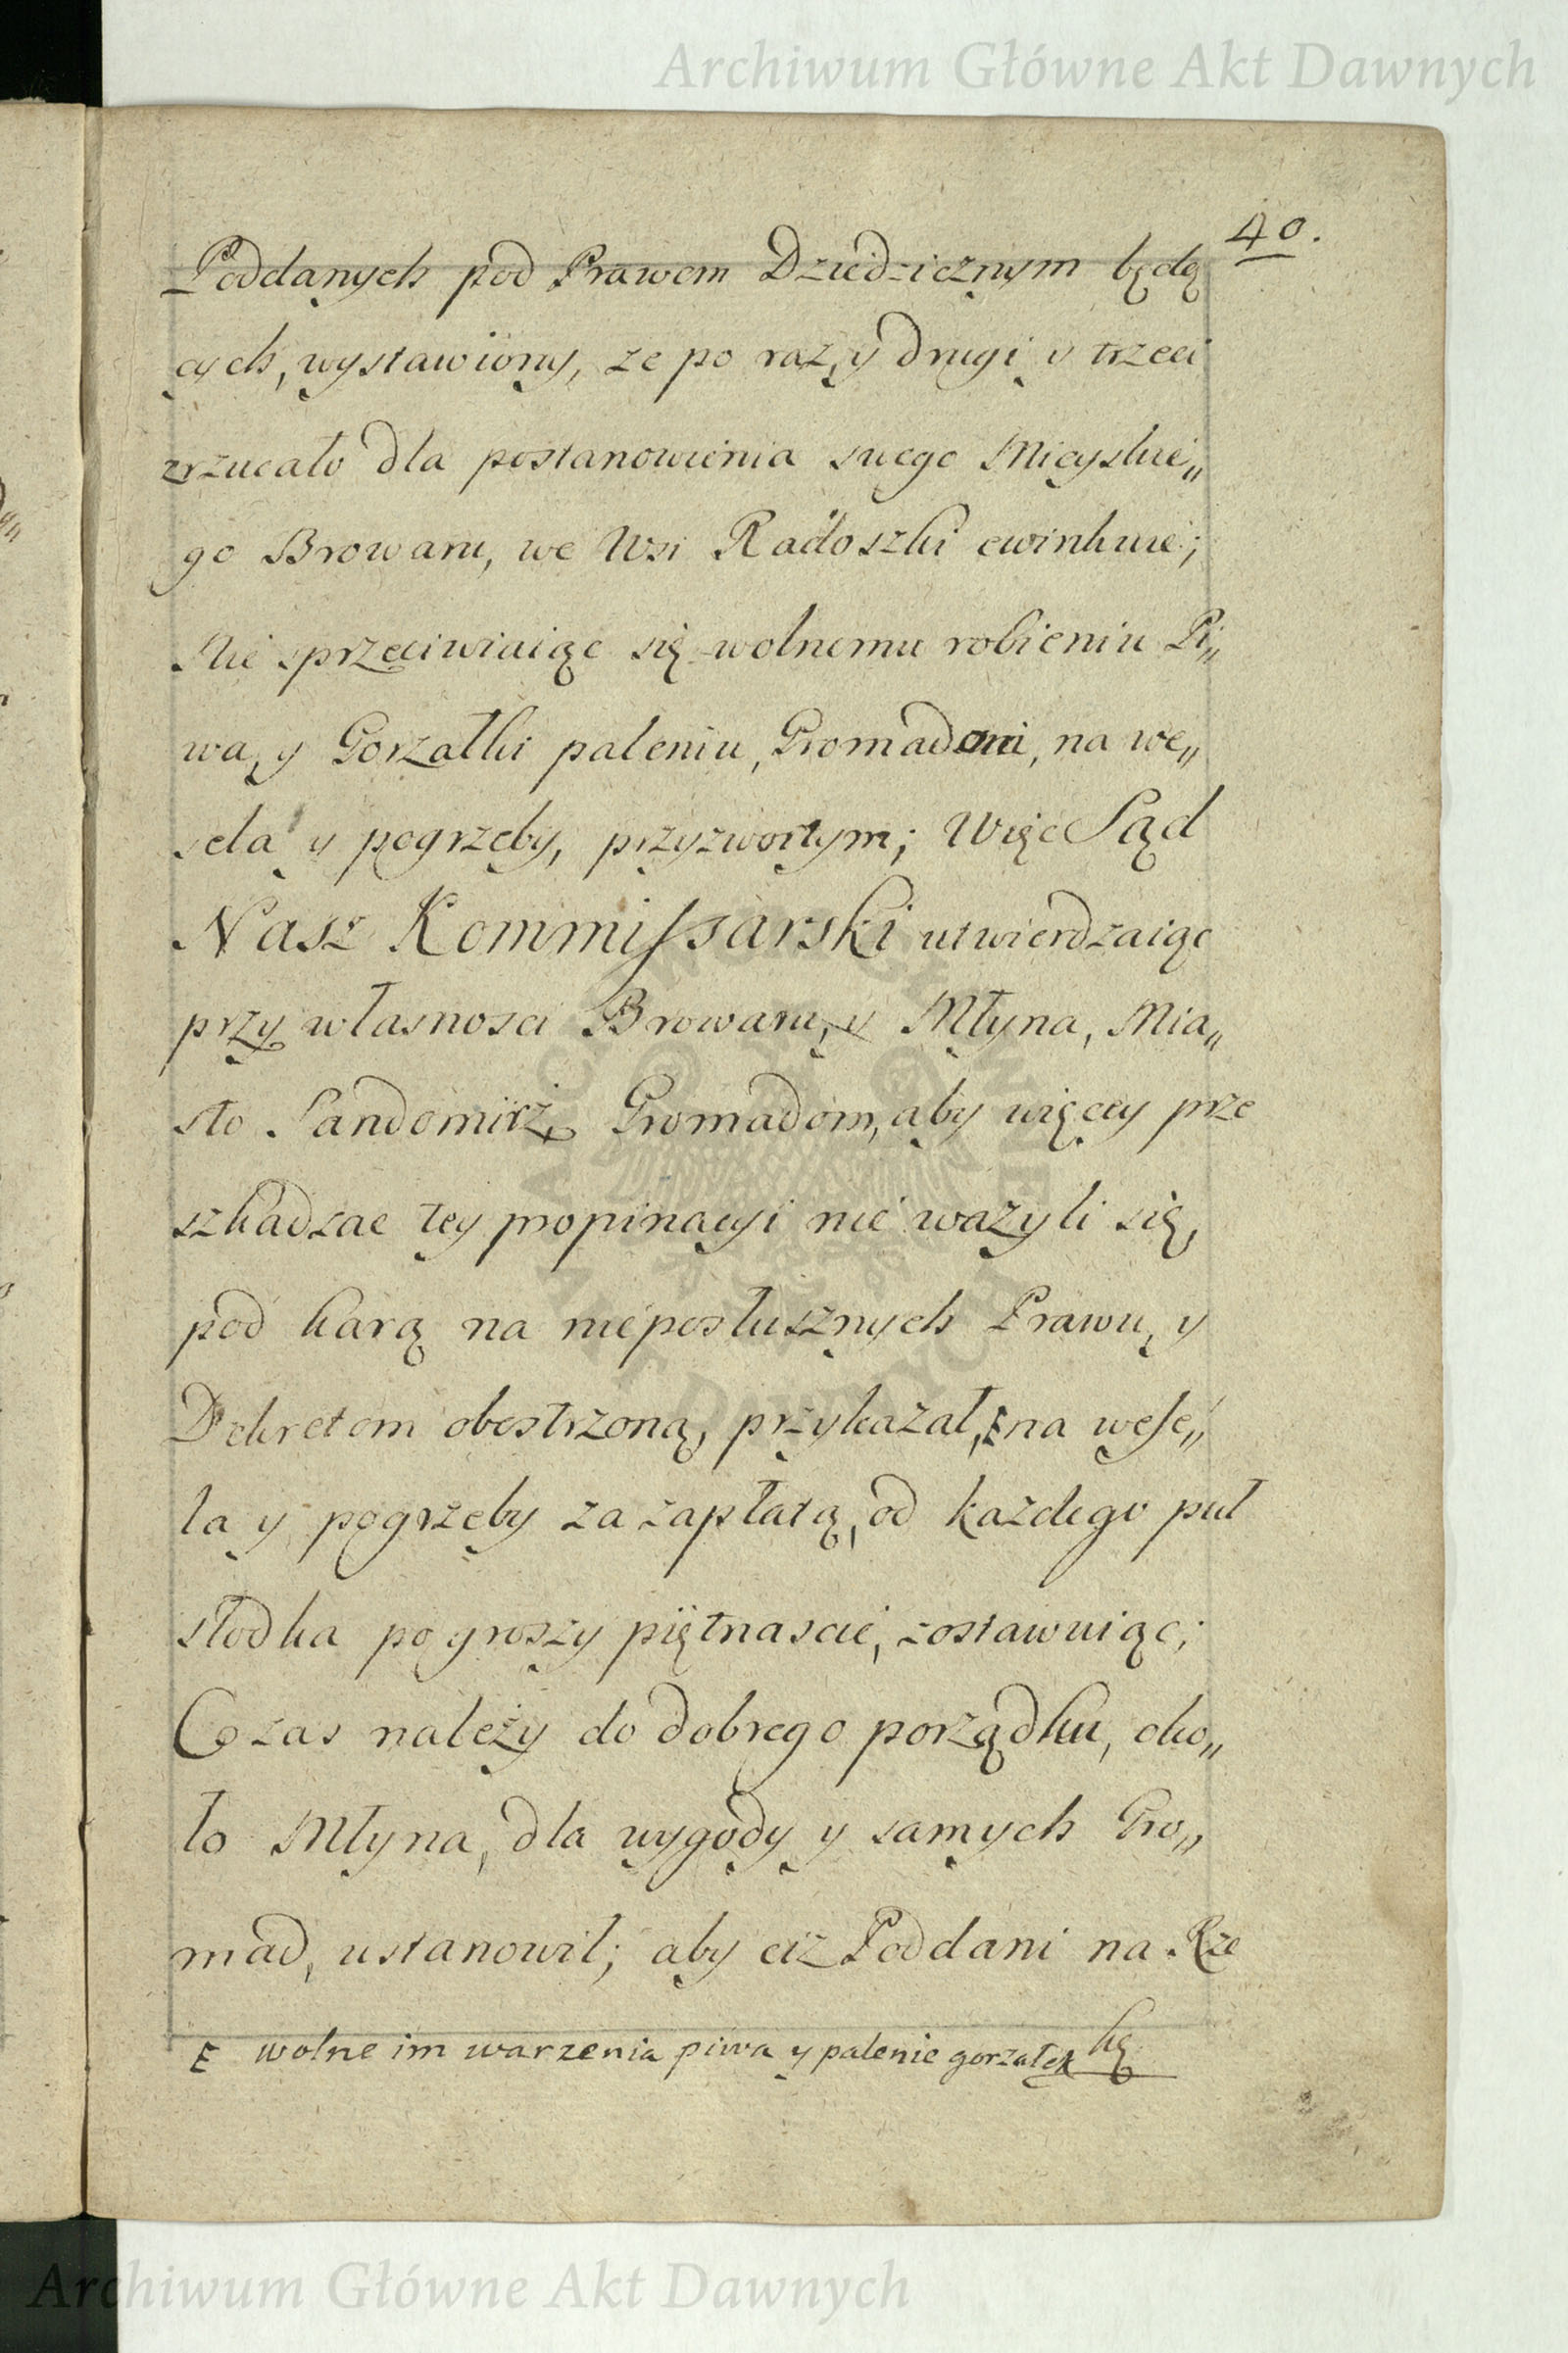 Archiwum Główne Akt Dawnych
40.
Poddanych pod Prawem Dziedzicznym będą
cych, wystawiony, ze po raz, y drugi y trzeci
zrzucało dla postanowienia swego Mieyskie„
go Browaru, we Wsi Radoszki ewinkuie;
Nie sprzeciwiaiąc się wolnemu robieniu Pi„
wa, y Gorzałki paleniu, Gromadom, na we„
sela y pogrzeby, przyzwoitym; Więc Sąd
Nasz Kommissarski utwierdzaiąc
przy własnosci Browaru, y Młyna, Mia„
sto Sandomirz, Gromadom, aby więcey prze
szkadzac tey propinacyi nie ważyli się,
pod karą na nieposłusznych Prawu, y
Dekretom obostrzoną, przykazał, E na wese„
la y pogrzeby za zapłatą, od każdego puł
słodka po groszy piętnascie, zostawuiąc;
Co zas należy do dobrego porządku, oko„
ło Młyna, dla wygody y samych Gro„
mad, ustanowił; aby ciż Poddani na Rze
kę
E wolne im warzenia piwa y palenie gorzałek
Archiwum Główne Akt Dawnych